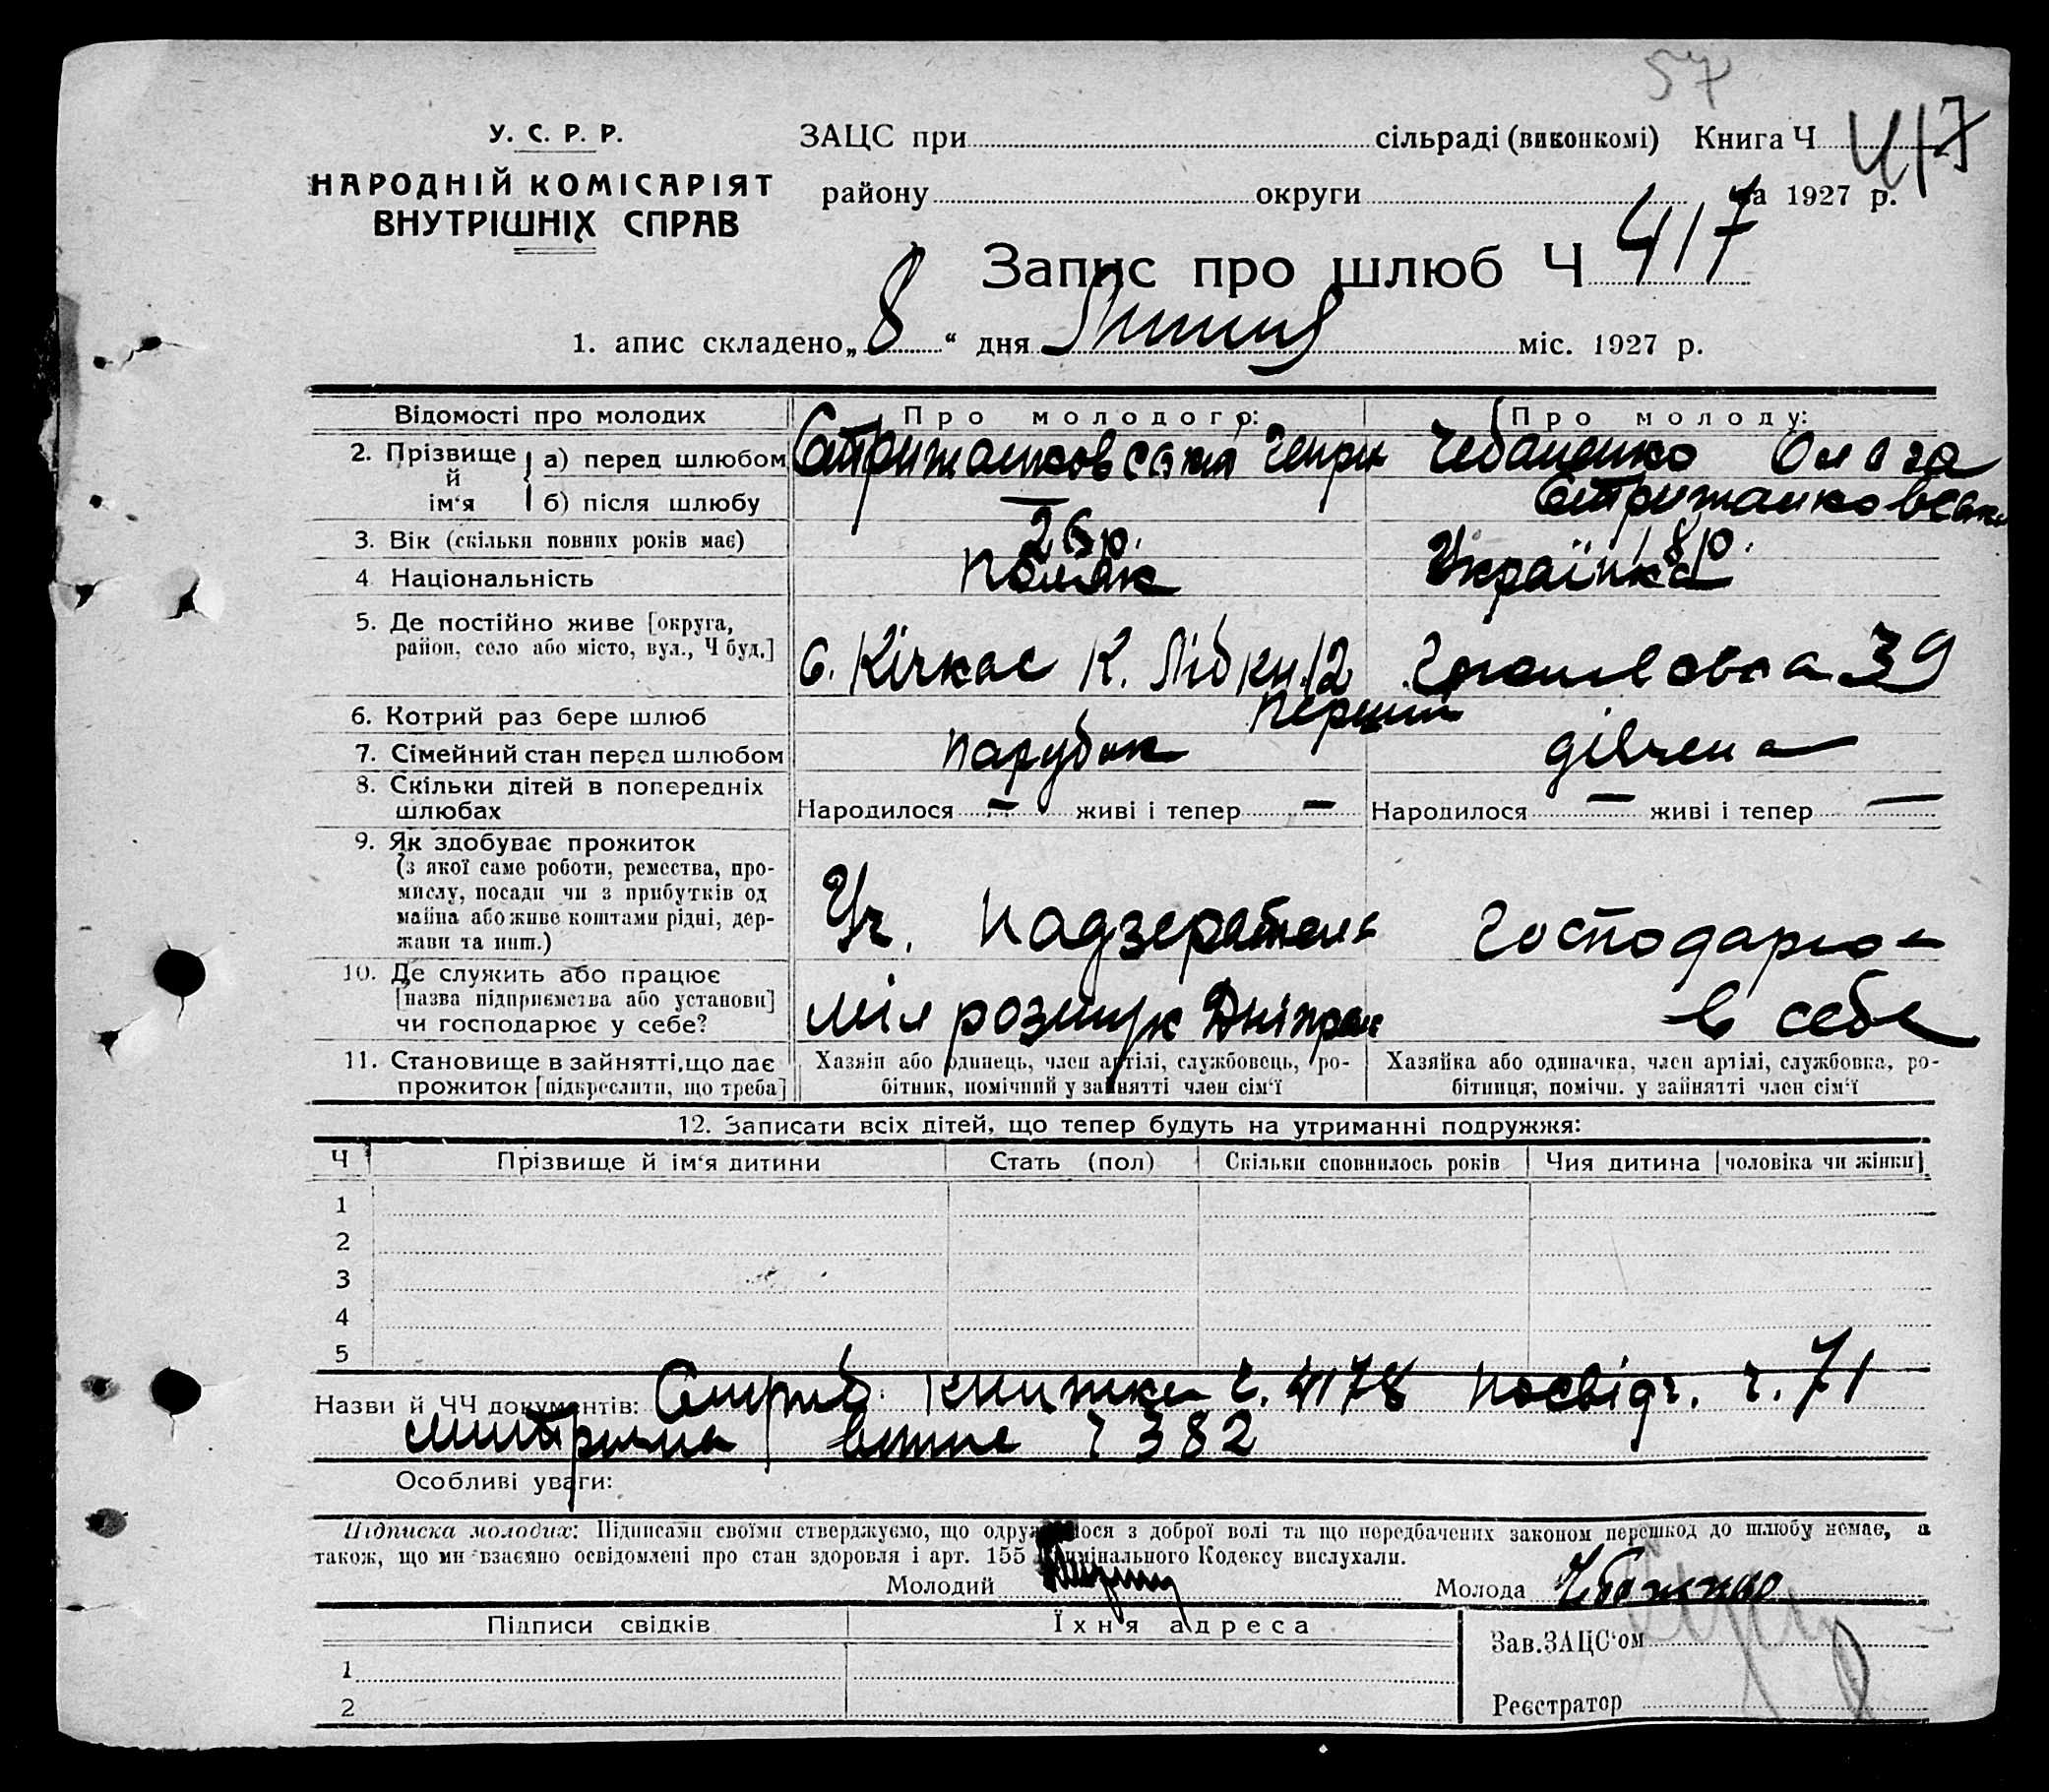 57
У. С. Р. Р.
НАРОДНІЙ КОМІСАРІЯТ
ВНУТРІШНІХ СПРАВ
ЗАЦС при сільраді (виконкомі) Книга Ч 417
району округи на 1927 р.
Запис про шлюб Ч 417
1. апис складено „8“ дня Липня міс. 1927 р.
Відомості про молодих Про молодого: Про молоду:
2. Прізвище й ім‘я а) перед шлюбом Генрик Чебаненко Ольга
б) після шлюбу —
3. Вік (скільки повних років має) 26 р. 18 р.
4 Національність Поляк Українка
5. Де постійно живе [округа, район, село або місто, вул., Ч буд.] С. Кічкас К. Лібкн. 12 39
6. Котрий раз бере шлюб Перший
7. Сімейний стан перед шлюбом парубок дівчена
8. Скільки дітей в попередніх шлюбах Народилося — живі і тепер — Народилося — живі і тепер —
9. Як здобуває прожиток
(з якої саме роботи, ремества, про-
мислу, посади чи з прибутків од
майна або живе коштами рідні, дер-
жави та инш.) Уч. Надзератель Господарює
10. Де служить або працює
[назва підприємства або установи]
чи господарює у себе? міл розшук в себе
11. Становище в зайнятті, що дає
прожиток [підкреслити, що треба]
Хазяїн або одинець, член артілі, службовець, ро-
бітник, помічний у зайнятті член сім‘ї
Хазяйка або одиначка, член артілі, службовка, ро-
бітниця, помічн. у зайнятті член сім‘ї
12. Записати всіх дітей, що тепер будуть на утриманні подружжя:
Ч Прізвище й ім‘я дитини Стать (пол) Скільки сповнилось років Чия дитина [чоловіка чи жінки]
1
2
3
4
5
Назви й ЧЧ документів: книжка ч. 4178 посвідч. ч. 71
метрична ч 382
Особливі уваги:
Підписка молодих: Підписами своїми стверджуємо, що одружилося з доброї волі та що передбачених законом перешкод до шлюбу немає, а
також, що ми взаємно освідомлені про стан здоровля і арт. 155 Кримінального Кодексу вислухали.
Молодий Молода
Підписи свідків Їхня адреса
Зав. ЗАЦС‘ом
1
2
Реєстратор